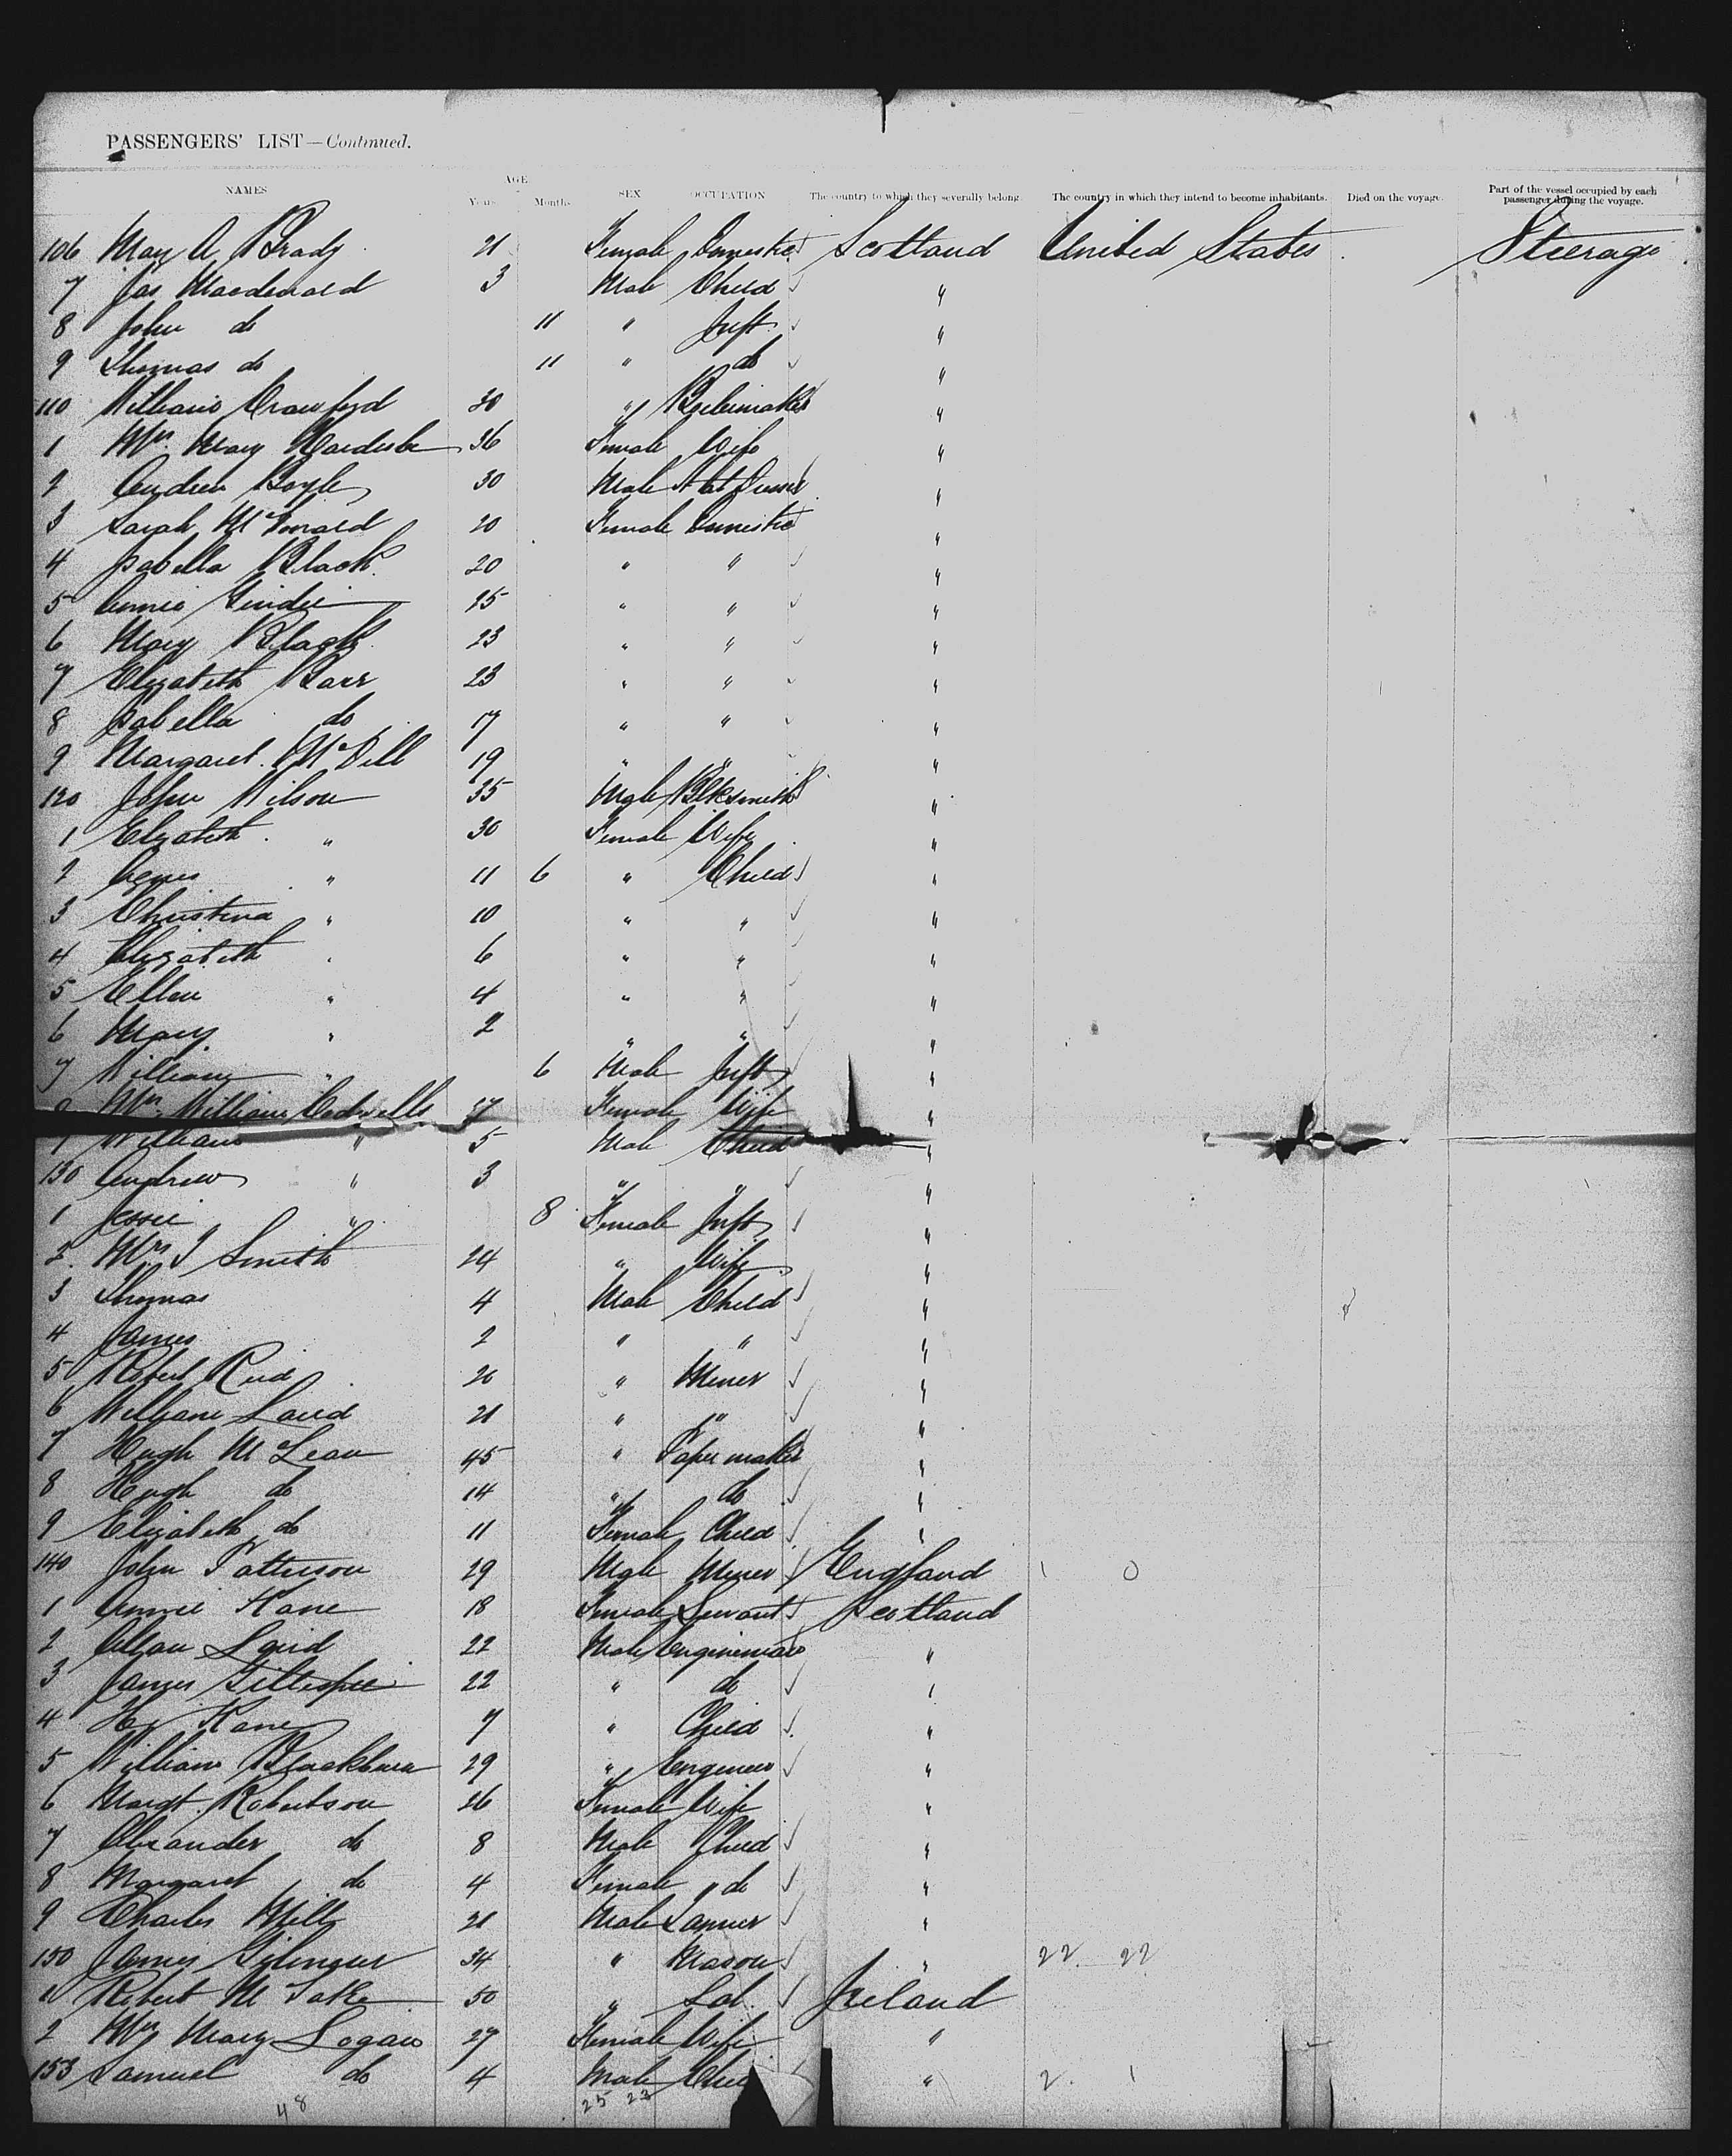 PASSENGERS' LIST—Continued.
NAMES AGE Years Months SEX OCCUPATION The country to which they severally belong. The country in which they intend to become inhabitants. Died on the voyage. Part of the vessel occupied by each passenger during the voyage.
106 Mary A Brady 21 Female Domestic Scotland United States Steerage
7 Jas Macdonald 3 Male Child "
8 John do 11 " Inft "
9 Thomas do 11 " do "
110 William Crawford 30 " Boilermaker "
1 Mrs Mary 36 Female Wife "
2 Andrew Boyle 30 Male "
3 Sarah McDonald 20 Female Domestic "
4 Isabella Black 20 " " "
5 Annie 25 " " "
6 Mary Black 23 " " "
7 Elizabeth Barr 23 " " "
8 Isabella do 17 " " "
9 Margaret McDill 19 " " "
120 John Wilson 35 Male Blksmith "
1 Elizabeth " 30 Female Wife "
2 Agnes " 11 6 " Child "
3 Christina " 10 " " "
4 Elizabeth " 6 " " "
5 Ellen " 4 " " "
6 Mary " 2 " " "
7 William " 6 Male Inft "
Mrs William Female Wife "
9 William " 5 Male Child "
130 Andrew " 3 " " "
1 Jessie " 8 Female Inft "
2 Mrs J Smith 24 " Wife "
3 Thomas 4 Male Child "
4 James 2 " " "
5 Robert Reid 20 " Miner "
6 William Laird 21 " " "
7 Hugh McLean 45 " Papermaker "
8 Hugh do 14 " do "
9 Elizabeth do 11 Female Child "
140 John Patterson 29 Male Miner England 1 0
1 Annie Kane 18 Female Servant Scotland
2 Allan Laird 22 Male Engineman "
3 James Gillespie 22 " do "
4 Hy Kane 7 " Child "
5 William Blackburn 29 " Engineer "
6 Margt. Robertson 26 Female Wife "
7 Alexander do 8 Male Child "
8 Margaret do 4 Female do "
9 Charles Mill 21 Male "
150 James 34 " Mason " 22 22
1 Robert 50 " Lab. Ireland
2 Mrs Mary Logan 27 Female Wife "
153 Samuel do 4 Male " 2 1
48 25 23